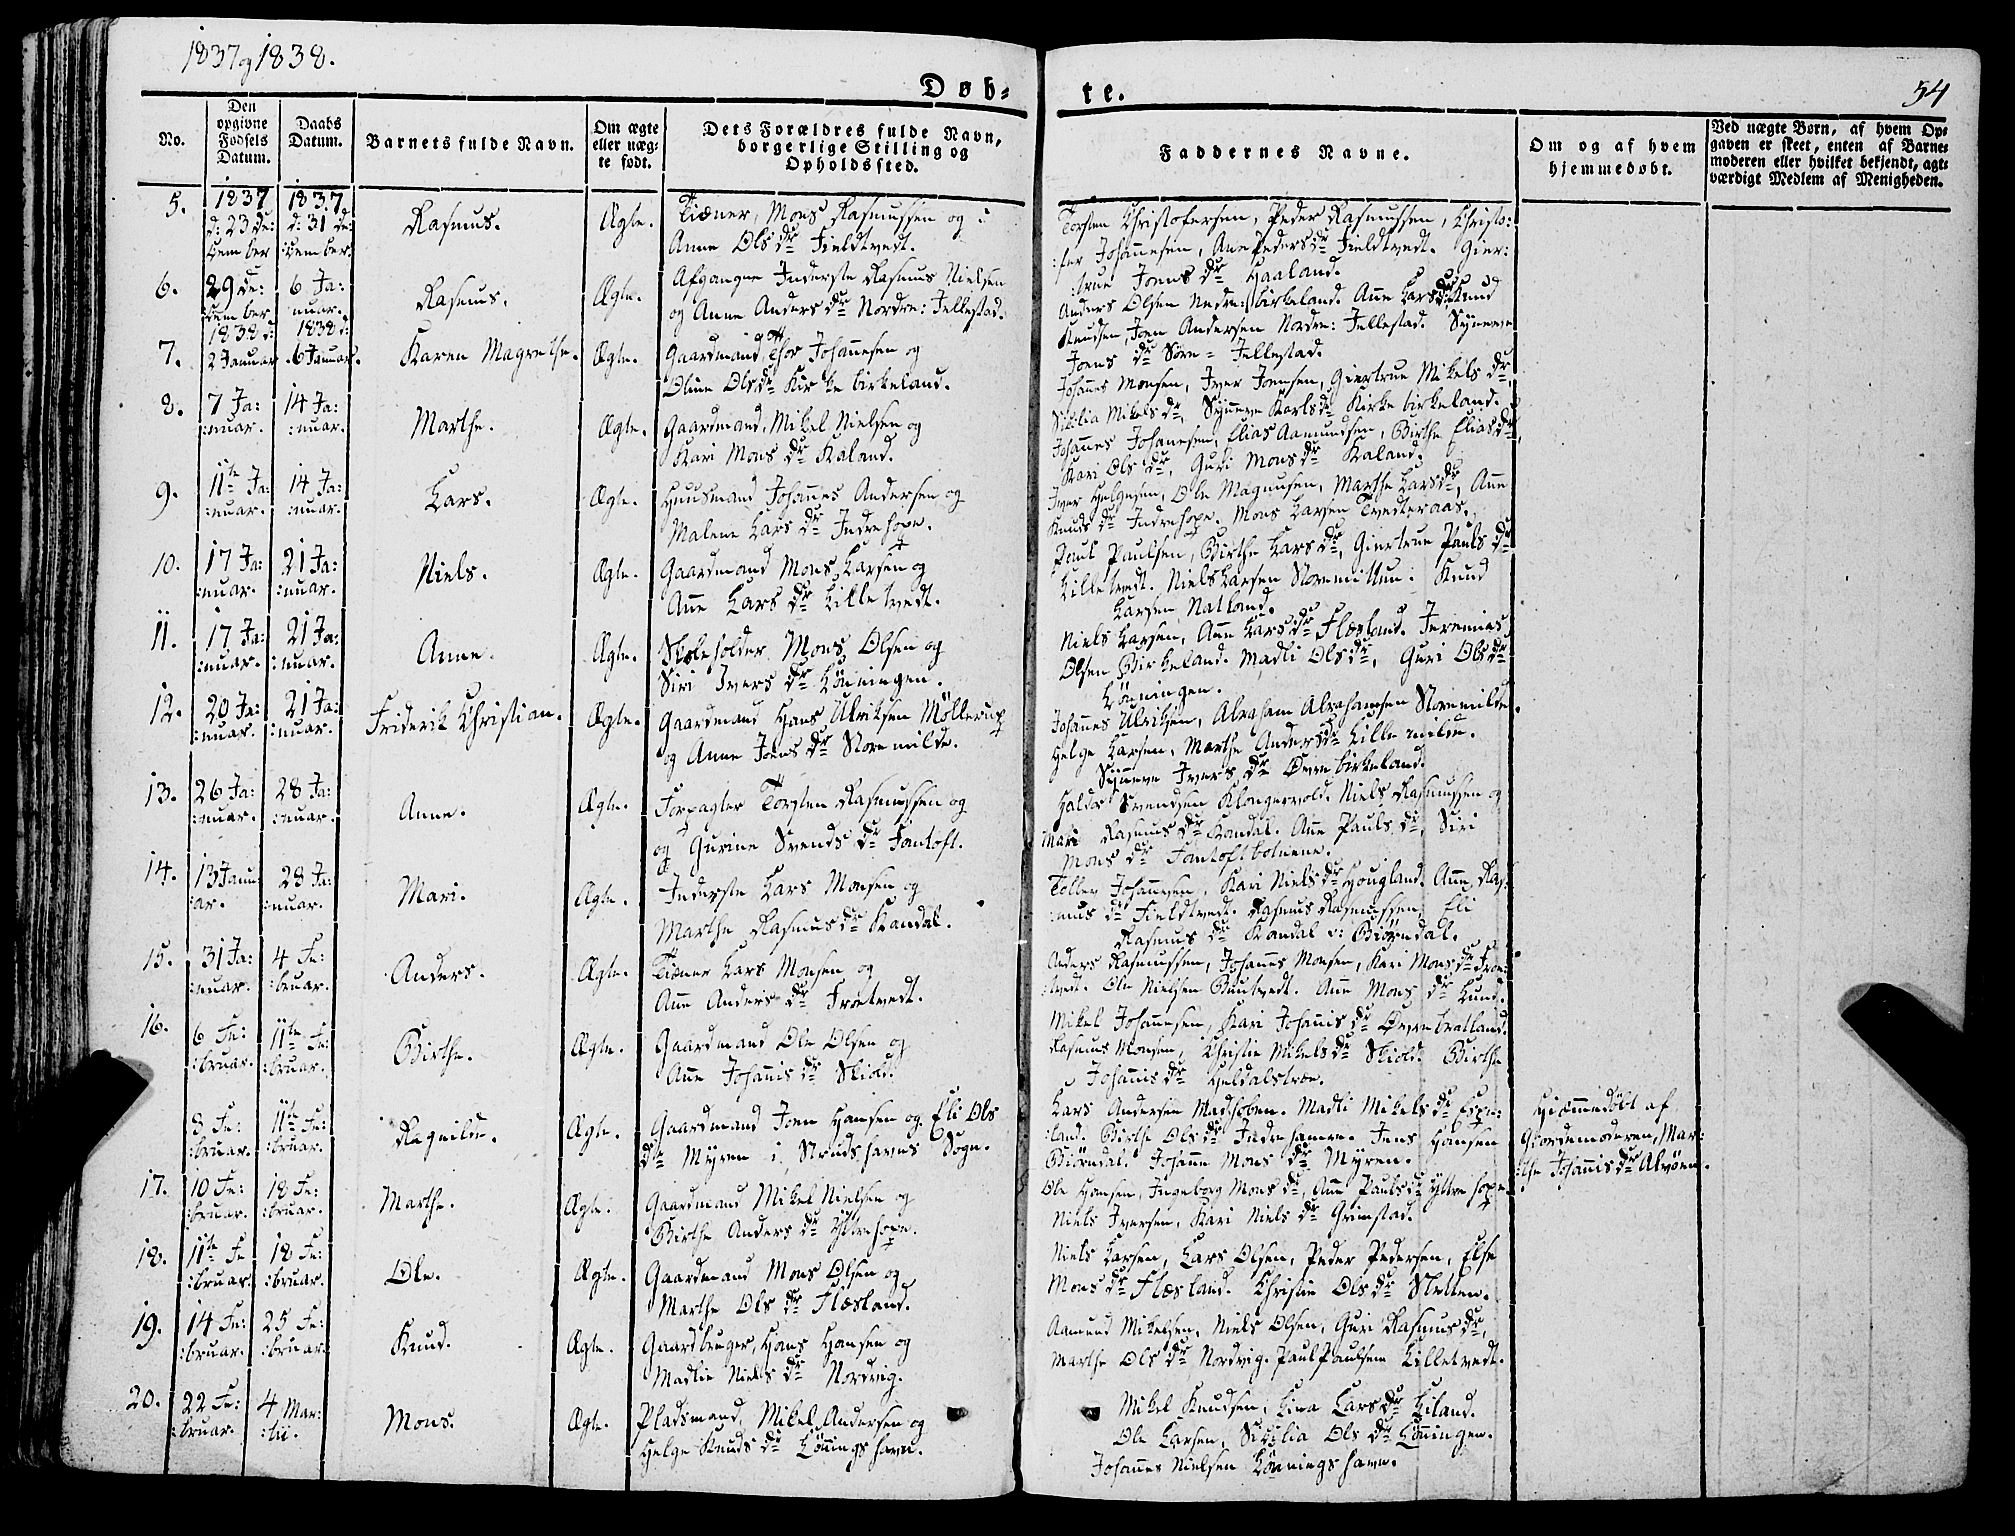 1837 og 1838.
Døb-
te.
54
No.
Den opgivne Fødsels Datum.
Daabs Datum.
Barnets fulde Navn.
Om ægte eller uæg-
te født.
Dets Forældres fulde Navn,
borgerlige Stilling og
Opholdssted.
Faddernes Navne.
Om og af hvem
hjemmedøbt.
Ved uægte Børn, af hvem Op-
gaven er skeet, enten af Barne-
moderen eller hvilket bekjendt, agt-
værdigt Medlem af Menigheden.
5.
1837
d: 23 De:
cember
1837.
d: 31 De:
:cember.
Rasmus.
Ægte.
Tiæner, Mons Rasmussen og
Anne Ols dr Fieldtvedt.
Torsten Christofersen, Peder Rasmussen, Christo:
:fer Johannesen, Ane Peders dr Fieldtvedt. Gier:
:true Joens dr Haaland.
6.
29 De:
:cember
6 Ja:
nuar.
Rasmus.
Ægte.
Afgangne Inderste Rasmus Nielsen
og Anne Anders dr Nordre: Jellestad.
Anders Olsen Nedre: birkeland. Anne Lars dr Knud
Knudsen, Joen Andersen Nordre: Jellestad. Synneve
Joens dr Søre= Jellestad.
7.
1838 d:
2 Januar
1838 d:
6 Januar.
Karen Magrethe.
Ægte.
Gaardmand, Thor Johannesen og
Oline Ols dr Kirkebirkeland.
Johannes Monsen, Iver Joensen, Giertrue Mikels dr,
Sicilia Mikels dr, Synneve Karls dr Kirkebirkeland.
8.
7 Ja:
:nuar.
14 Ja:
:nuar.
Marthe.
Ægte.
Gaardmand, Mikel Nielsen og
Kari Mons dr Kaland.
Johannes Johannesen, Elias Aamundsen, Birthe Elias dr,
Kari Ols dr, Guri Mons dr Kaland.
9.
11te Ja:
:nuar.
14 Ja:
:nuar.
Lars.
Ægte.
Huusmand Johannes Andersen og
Malene Lars dr Indrehope.
Iver Helgesen, Ole Magnusen, Marthe Lars dr, Anne
Knuds dr Indrehope. Mons Larsen Tvedteraas.
10.
17 Ja:
:nuar.
21 Ja:
:nuar.
Niels.
Ægte.
Gaardmand Mons Larsen og
Anne Lars dr Lilletvedt.
Poul Paulsen, Birthe Lars dr, Giertrue Pauls dr
Lilletvedt. Niels Larsen Storemilde: Knud
Larsen Natland.
11.
17 Ja:
:nuar.
21 Ja:
:nuar.
Anne.
Ægte.
Skoleholder Mons Olsen og
Siri Ivers dr Lønningen.
Niels Larsen, Anne Lars dr Flæsland. Jeremias
Olsen Birkeland. Madli Ols dr, Guri Ols dr
Lønningen.
12.
20 Ja:
:nuar.
21 Ja:
:nuar.
Friderik Christian.
Ægte.
Gaardmand Hans Ulriksen Møllerup
og Anne Joens dr Storemilde.
Johannes Ulriksen, Abraham Abrahamsen Storemilde.
Helge Larsen, Marthe Anders dr Lillemilde.
Synneve Ivers dr Øvrebirkeland.
13.
26 Ja:
:nuar.
28 Ja:
:nuar.
Anne.
Ægte.
Forpagter Torsten Rasmussen og
og Gurine Svends dr Fantoft.
Haldor Svendsen Klongervold. Niels Rasmussen og
Mari Rasmus dr Kandal. Anne Pauls dr, Siri
Mons dr Fantoftbotnene.
14.
13 Janu
:ar.
28 Ja:
:nuar.
Mari.
Ægte.
Inderste Lars Monsen og
Marthe Rasmus dr Kandal.
Tollev Johannesen, Kari Niels dr Hougland. Anne Ras:
:mus dr Fieldtvedt. Rasmus Rasmussen, Eli
Rasmus dr Kandal v: Biørndal.
15.
31 Ja:
:nuar.
4 Fe:
:bruar.
Anders.
Ægte.
Tiæner Lars Monsen og
Anne Anders dr Frotvedt.
Anders Rasmussen, Johannes Monsen, Kari Mons dr Fro:
:tvedt. Ole Nielsen Buutvedt. Anne Mons dr Lund.
16.
6 Fe:
:bruar.
11te Fe:
:bruar.
Birthe.
Ægte.
Gaardmand Ole Olsen og
Anne Johannis dr Skiold.
Mikel Johannesen, Kari Johannis dr Øvrebratland.
Rasmus Monsen, Christie Mikels dr Skiold. Birthe
Johannis dr Heldalstræe.
8 Fe:
:bruar.
11te Fe:
:bruar.
Ragnilde.
Ægte.
Gaardmand Joen Hansen og Eli Ols
dr Myren i Strudshavns Sogn.
Lars Andersen Madshoben. Madli Mikels dr Espe:
:land. Birthe Ols dr Indrehamre. Jens Hansen
Biørndal. Johanne Mons dr Myren.
Hiemmedøbt af
Giordemoderen, Mar:
:the Johannis dr Alvøen.
17.
10 Fe:
:bruar.
18 Fe:
:bruar.
Marthe.
Ægte.
Gaardmand Mikel Nielsen og
Birthe Anders dr Ytrehope.
Ole Hansen, Ingeborg Mons dr, Anne Pauls dr Yttrehope.
Niels Iversen, Kari Niels dr Grimstad.
18.
11te Fe
:bruar.
18 Fe:
:bruar.
Ole.
Ægte.
Gaardmand Mons Olsen og
Marthe Ols dr Flæsland.
Niels Larsen, Lars Olsen, Peder Pedersen, Else
Mons dr Flæsland. Christie Ols dr Sletten.
19.
14 Fe:
:bruar.
25 Fe:
:bruar.
Knud.
Ægte.
Gaardbruger, Hans Hansen og
Madlie Niels dr Nordvig.
Aamund Mikelsen, Niels Olsen, Guri Rasmus dr,
Marthe Ols dr Nordvig. Paul Paulsen Lilletvedt.
20.
22 Fe:
:bruar.
4 Mar:
:tii.
Mons.
Ægte.
Pladsmand, Mikel Andersen og
Helge Knuds dr Lønningshavn.
Mikel Knudsen, Lina Lars dr Liland.
Ole Larsen, Sicilia Ols dr Lønningen.
Johannes Nielsen Lønningshavn.